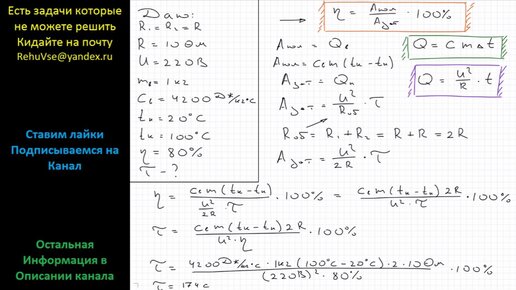 Есть задачи которые
не можете решить
Кидайте на почту
RehuVse@yandex.ru
Ставим лайки
Подписываемся на
Канал
Остальная
Информация в
Описании канала
Дано:
R₁ = R₂ = R
R = 10 Ом
U = 220 В
m_в = 1 кг
C_в = 4200 Дж/кг°C
t_н = 20°C
t_к = 100°C
η = 80%
τ - ?
η = Aпол / Aзат · 100%
Aпол = Qв
Q = c m Δt
Aпол = Cв m (tк - tн)
Aзат = Qн
Q = U²/R · t
Aзат = U²/Rоб · τ
Rоб = R₁ + R₂ = R + R = 2R
Aзат = U²/2R · τ
η = Cв m (tк - tн) / (U²/2R · τ) · 100% = Cв m (tк - tн) 2R / (U² · τ) · 100%
τ = Cв m (tк - tн) 2R / (U² · η) · 100%
τ = 4200 Дж/кг°C · 1кг (100°C - 20°C) · 2 · 10 Ом / ((220В)² · 80%) · 100%
τ = 174 с